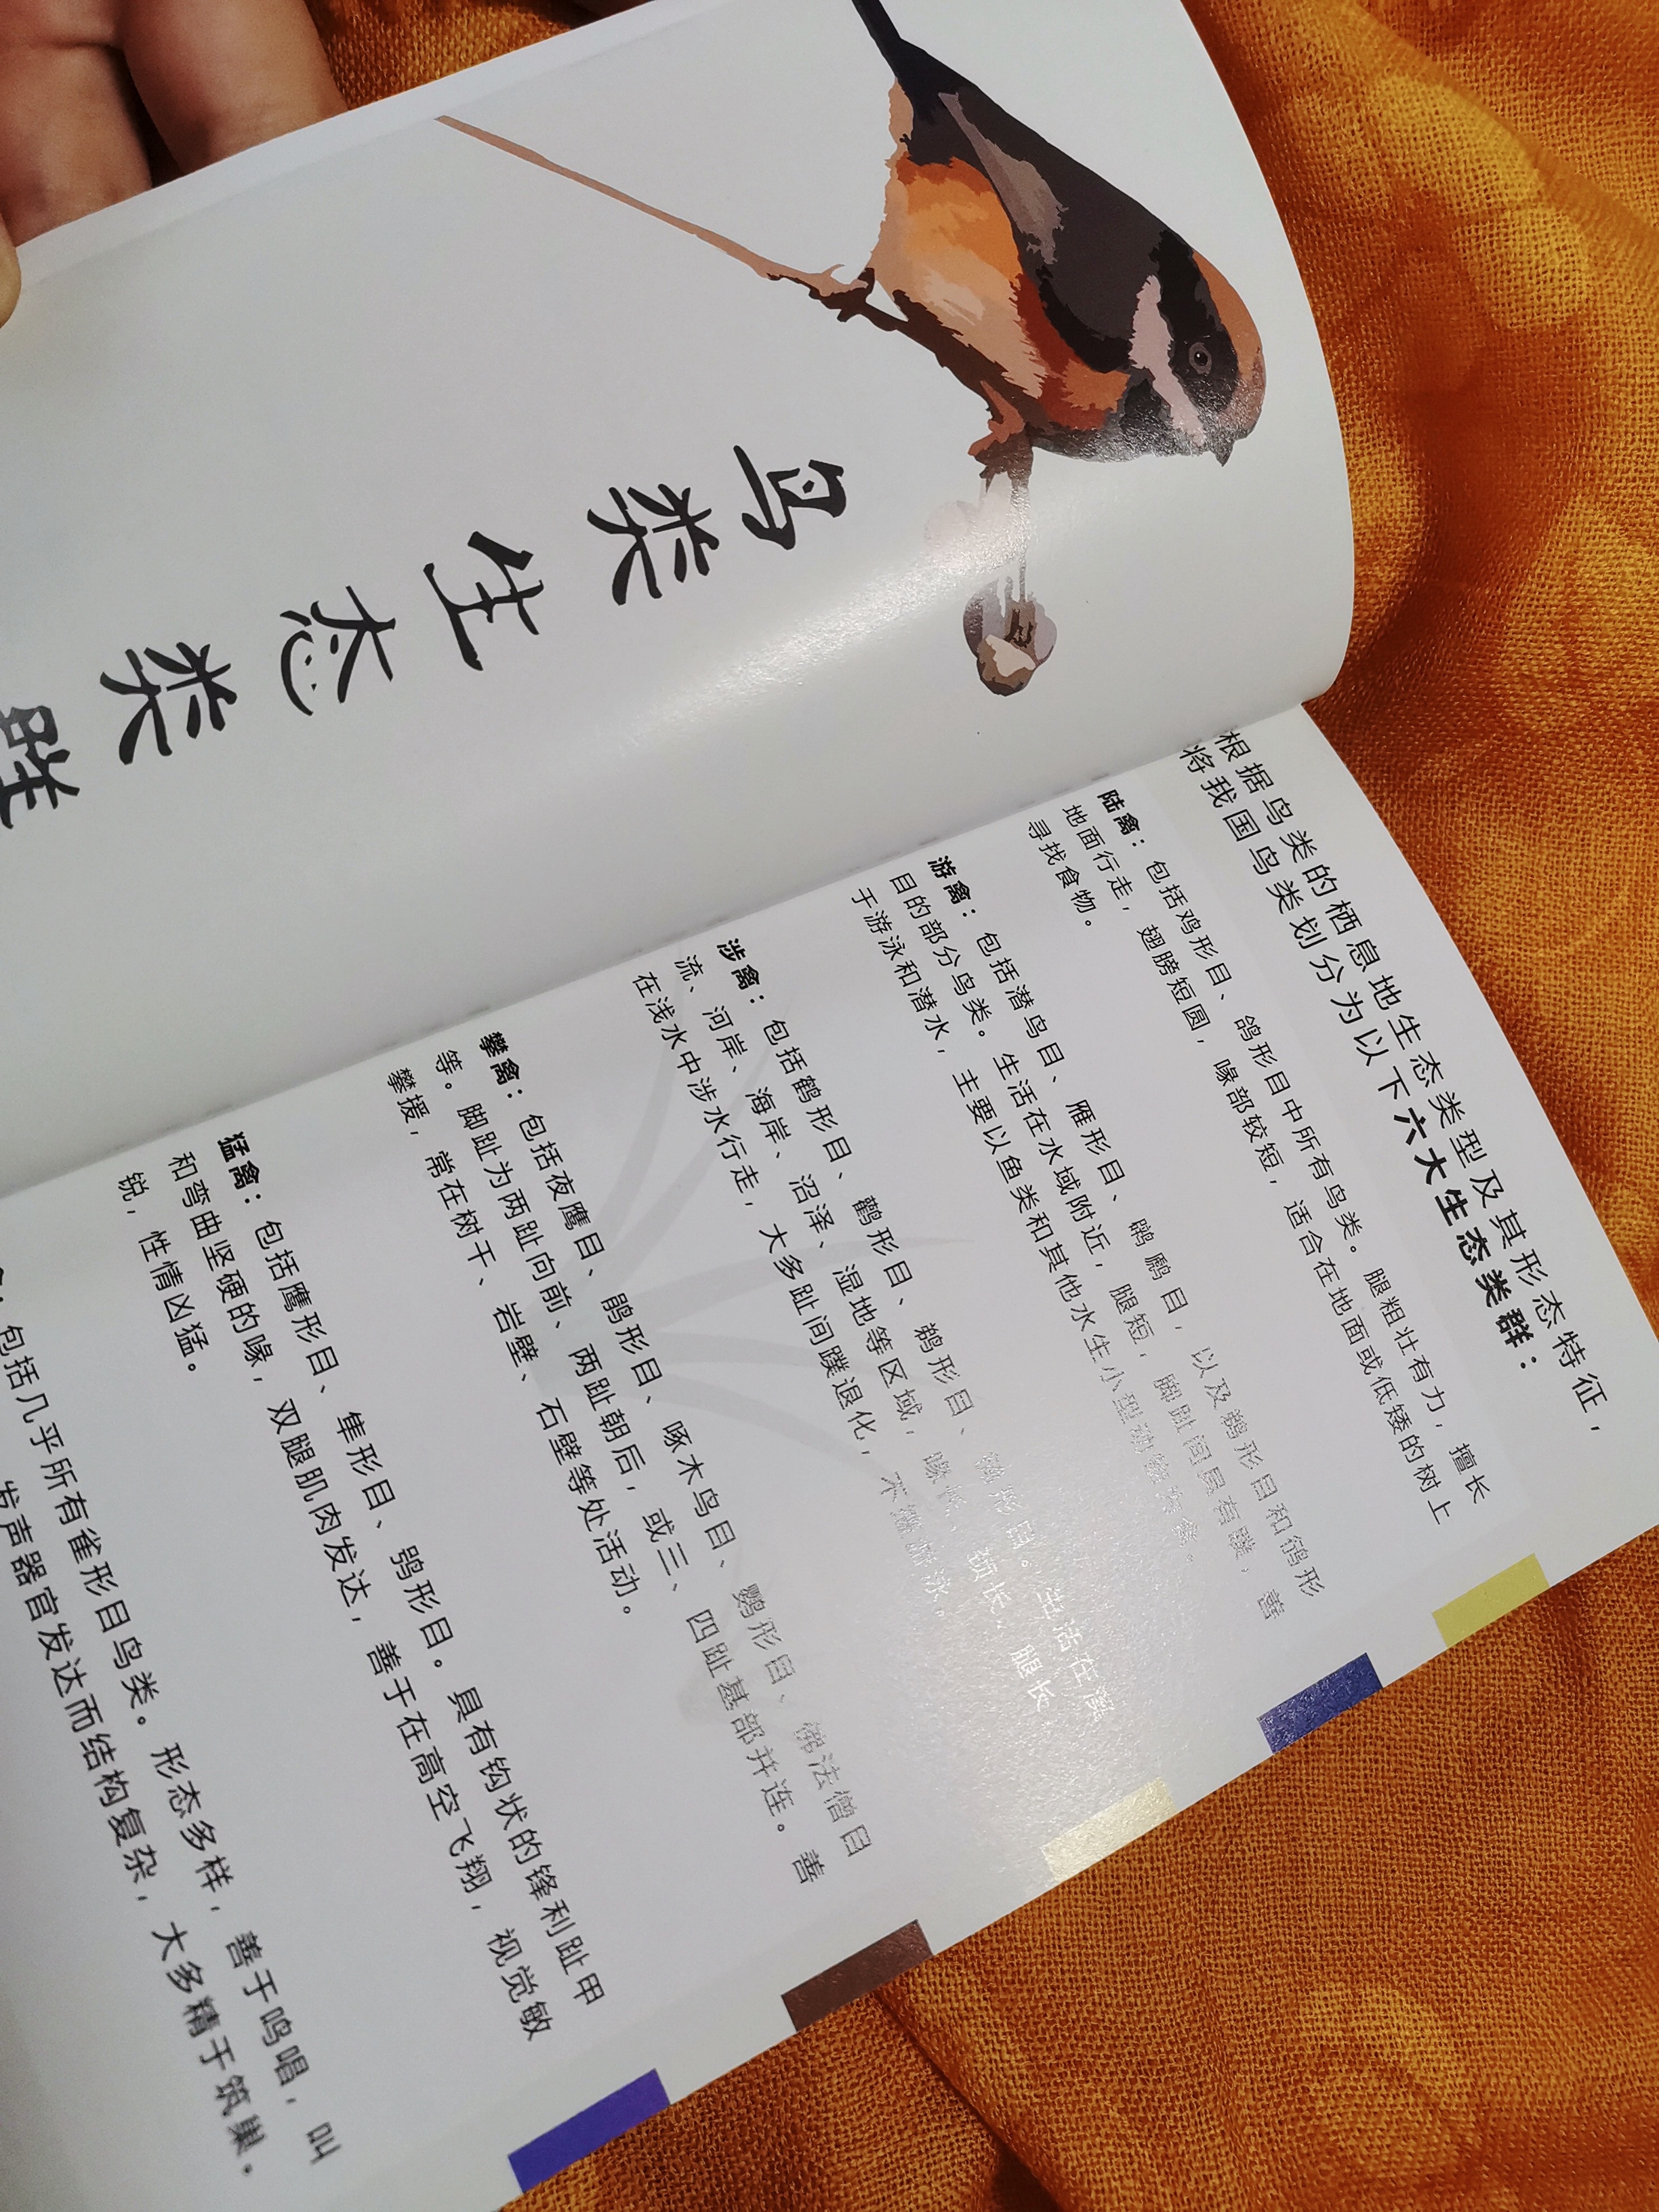 鸟类生态类群
根据鸟类的栖息地生态类型及其形态特征，
将我国鸟类划分为以下六大生态类群：
陆禽：包括鸡形目、鸽形目中所有鸟类。腿粗壮有力，擅长
地面行走，翅膀短圆，喙部较短，适合在地面或低矮的树上
寻找食物。
游禽：包括潜鸟目、雁形目、䴙䴘目，以及鹈形目和鸻形
目的部分鸟类。生活在水域附近，腿短，脚趾间具有蹼，善
于游泳和潜水，主要以鱼类和其他水生小型动物为食。
涉禽：包括鹤形目、鹳形目、鹈形目、鸻形目。生活在溪
流、河岸、海岸、沼泽、湿地等区域，喙长、颈长、腿长
在浅水中涉水行走，大多趾间蹼退化，不擅游泳。
攀禽：包括夜鹰目、鹃形目、啄木鸟目、鹦形目、佛法僧目
等。脚趾为两趾向前、两趾朝后，或三、四趾基部并连。善
攀援，常在树干、岩壁、石壁等处活动。
猛禽：包括鹰形目、隼形目、鸮形目。具有钩状的锋利趾甲
和弯曲坚硬的喙，双腿肌肉发达，善于在高空飞翔，视觉敏
锐，性情凶猛。
包括几乎所有雀形目鸟类。形态多样，善于鸣唱，叫
发声器官发达而结构复杂，大多精于筑巢。